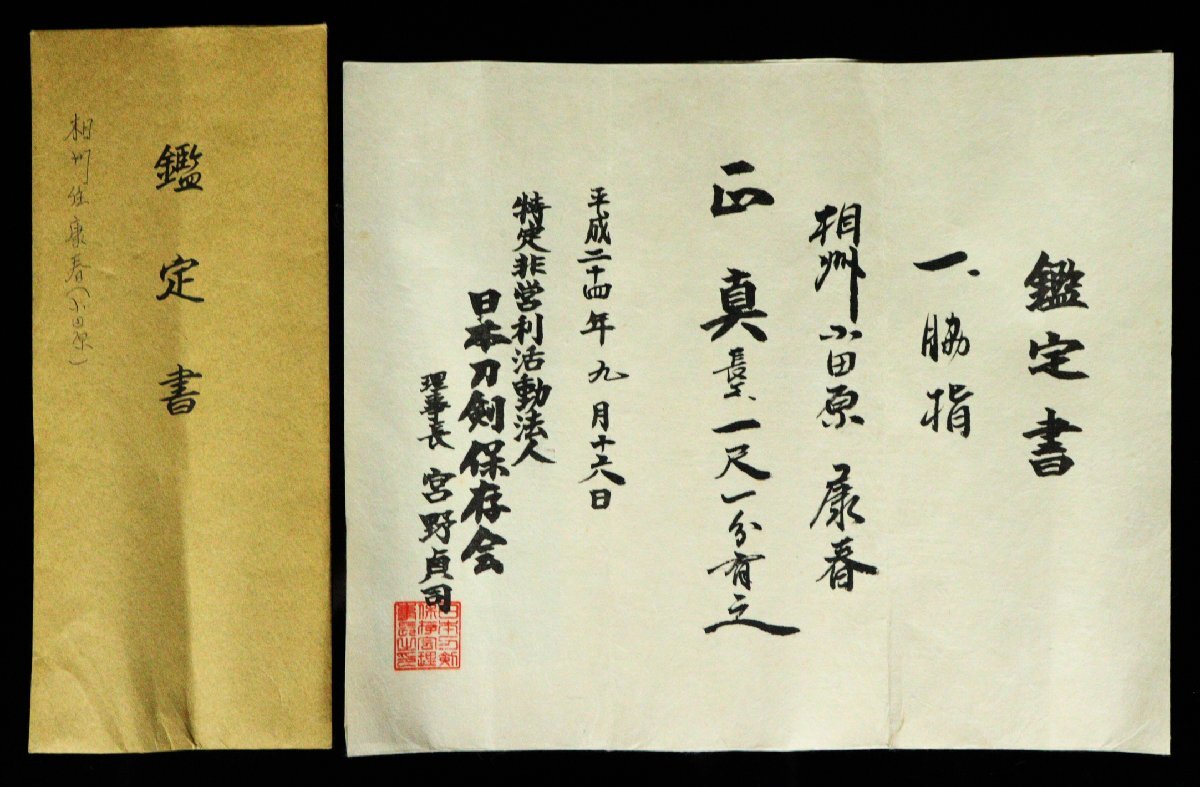 鑑定書
一、脇指
相州小田原 康春
正真 長サ、一尺一分有之
平成二十四年九月十六日
特定非営利活動法人
日本刀剣保存会
理事長 宮野貞司
鑑定書
相州住康春(小田原)